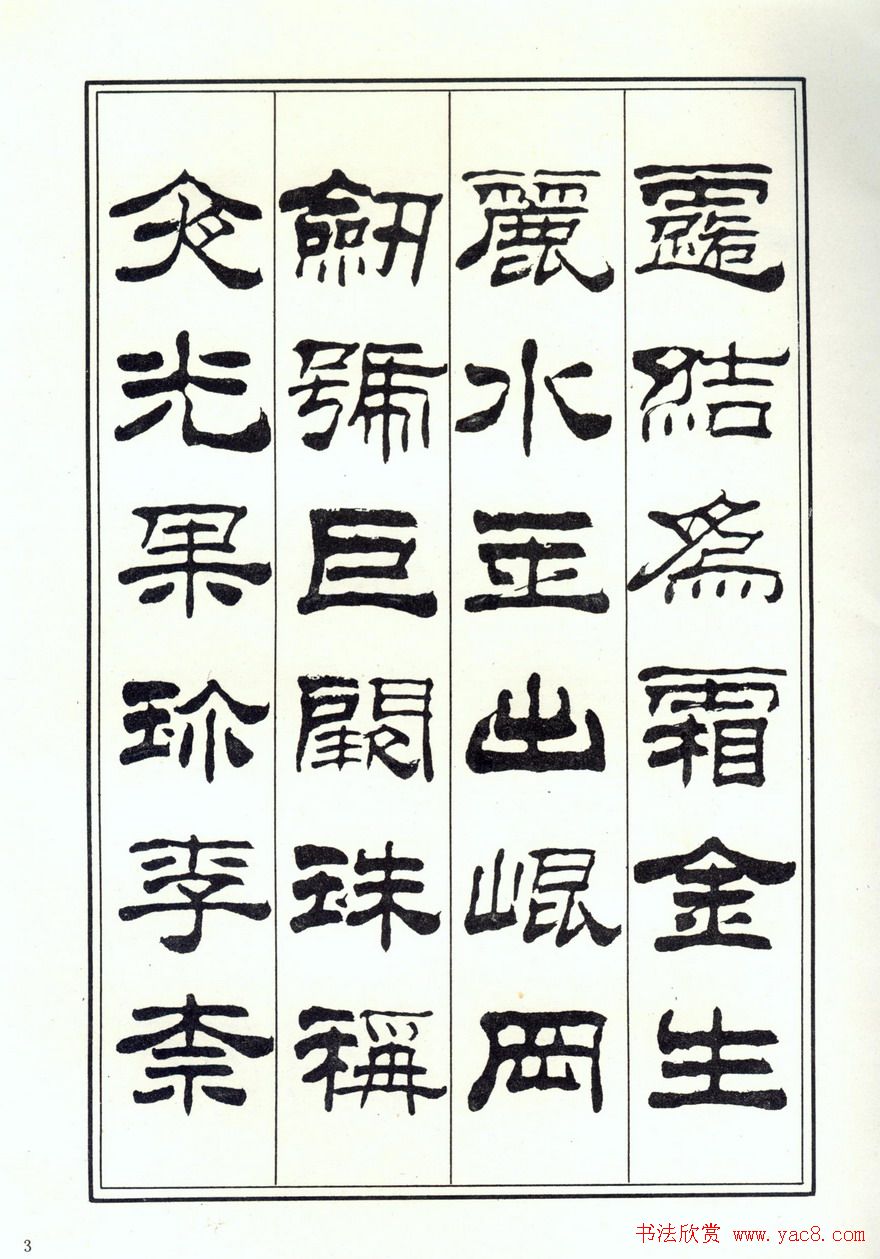 露結爲霜金生
麗水玉出崐岡
劒號巨闕珠稱
夜光果珍李柰
3
书法欣赏 www.yac8.com